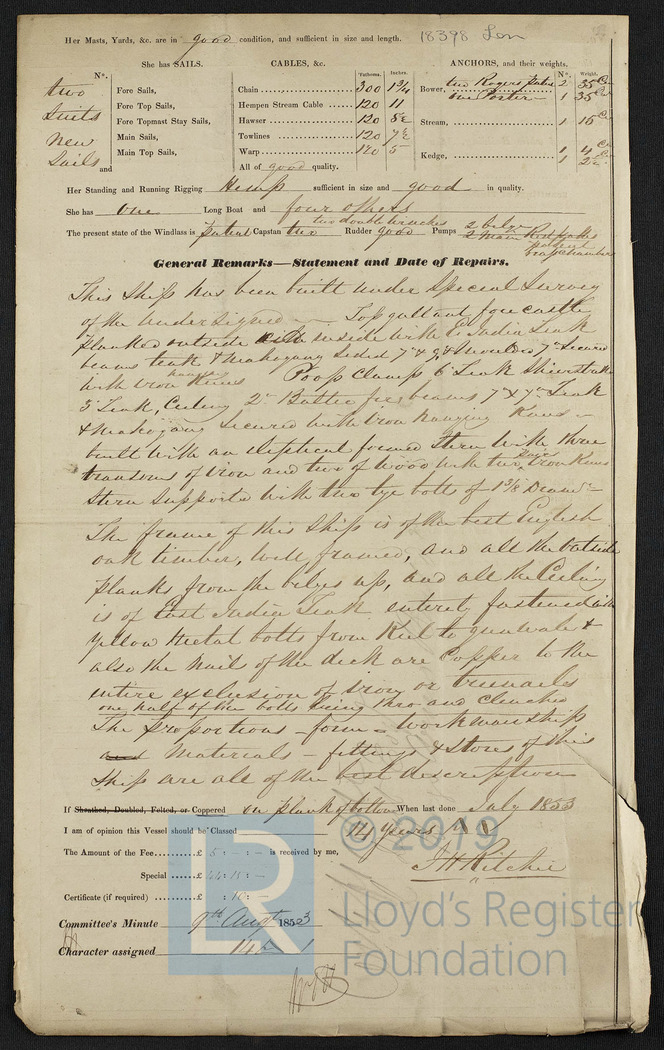 Her Masts, Yards, &c. are in good condition, and sufficient in size and length. 18398 Lon
She has SAILS. CABLES, &c. ANCHORS, and their weights.
Nº. Fathoms. Inches. Nº. Weight.
two Suits New Sails and
Fore Sails,
Fore Top Sails,
Fore Topmast Stay Sails,
Main Sails,
Main Top Sails,
Chain 300 1¾
Hempen Stream Cable 120 11
Hawser 120
Towlines 120 7½
Warp 120 5
All of good quality.
Bower, two Rogers Patent 2 35
one Porter 1 35
Stream, 1 16
Kedge, 1 4
1 2
Her Standing and Running Rigging Hemp sufficient in size and good in quality.
She has one Long Boat and four others
The present state of the Windlass is patent Capstan two two double Winches Rudder good Pumps 2 bilge
2 Main Redpaths patent brass Chambers
General Remarks—Statement and Date of Repairs.
This Ship has been built under Special Survey
of the Undersigned Topgallant forecastle
planked outside inside with E India Teak
beams teak & Mahogany Sided 7 & 9 & Moulded 7 Secured
with iron hanging Knees Poop Clamps 6 Teak Shierstrake
3 Teak, Ceiling 2 Baltic fir beams 7 x 7 Teak
& Mahogany Secured with iron hanging Knees
built with an eliptical formed Stern with three
transoms of iron and two of wood with two iron Knees
Stern Supported with two tye bolts of 1 3/8 Diamr
The frame of this Ship is of the best English
oak timber, well framed, and all the Outside
planks from the bilges up, and all the Ceiling
is of East India Teak entirely fastened with
Yellow Metal bolts from Keel to gunwale &
also the Nails of the deck are Copper to the
entire exclusion of iron or treenails
one half of the bolts being thro and clenched
The proportions – form – workmanship
and Materials – fittings & Stores of this
Ship are all of the best description
If Sheathed, Doubled, Felted, or Coppered on plank of bottom When last done July 1853
I am of opinion this Vessel should be Classed 14 years A 1
The Amount of the Fee......£ 5 : – : – is received by me,
Special ......£ 44 : 15 : –
Certificate (if required) ........£ : 10 : –
J H Ritchie
Committee's Minute 9th Augt 1853
Character assigned 14 A 1
LR
© 2019
Lloyd's Register
Foundation